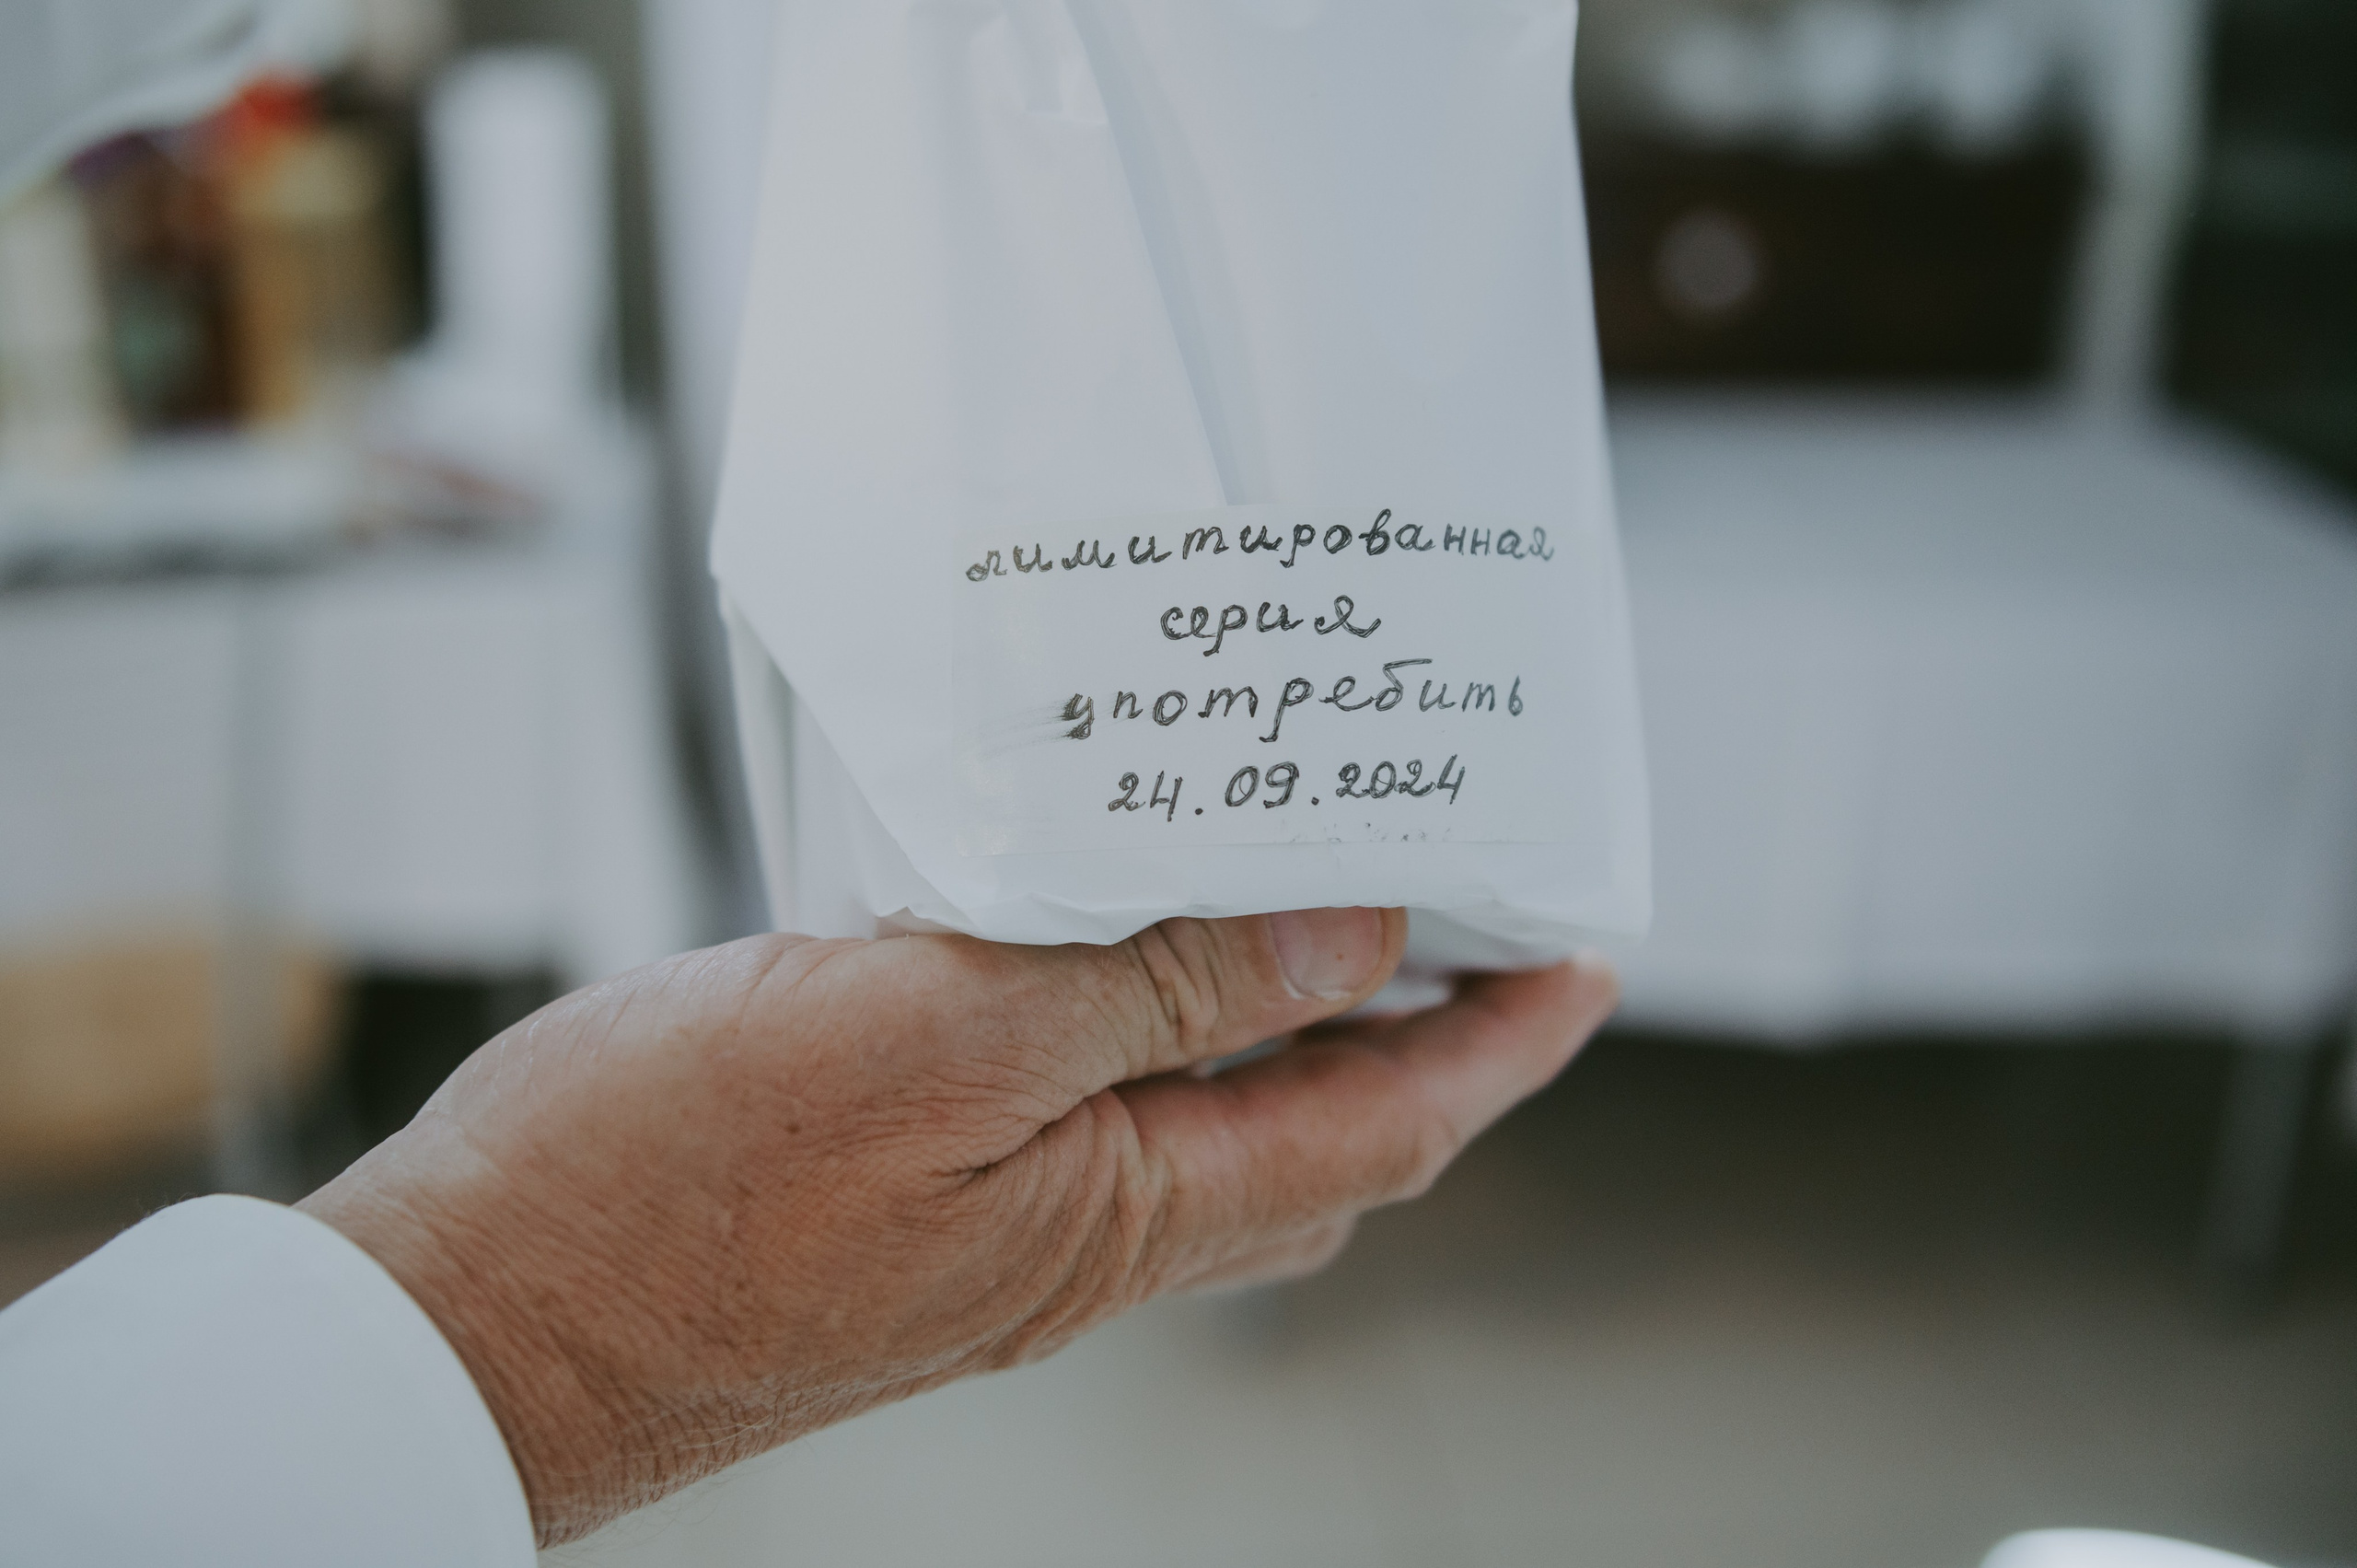 лимитированная
серия
употребить
24.09.2024